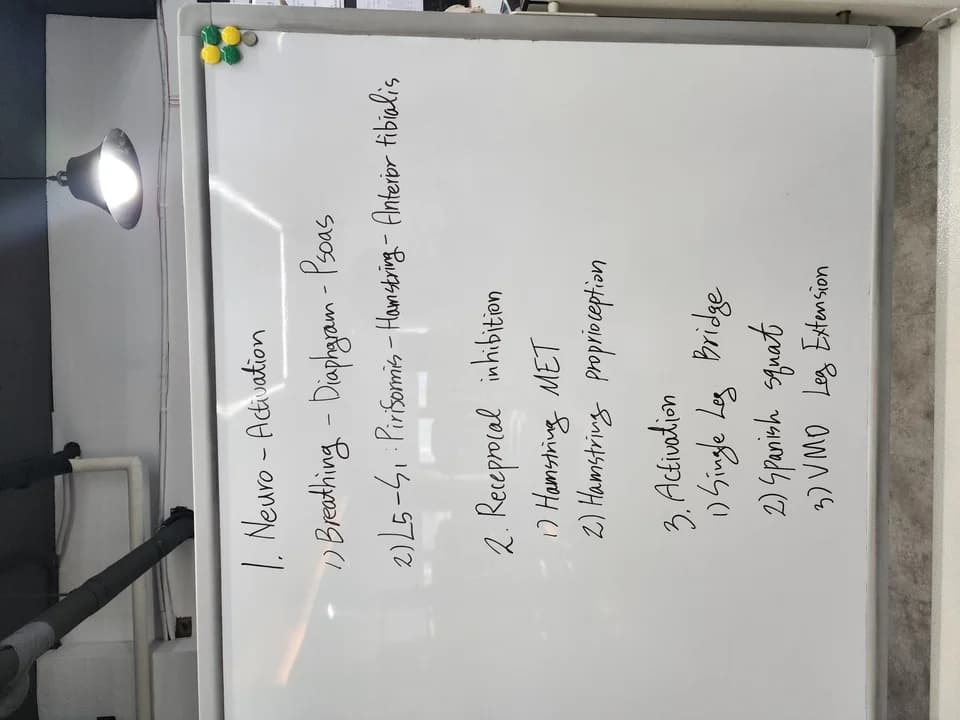 1. Neuro - Activation
1) Breathing - Diaphgram - Psoas
2) L5 - S1 : Pirisormis - Hamstring - Anterior tibialis
2. Receprocal inhibition
1) Hamstring MET
2) Hamstring proprioception
3. Activation
1) Single Leg Bridge
2) Spanish squat
3) VMO Leg Extension